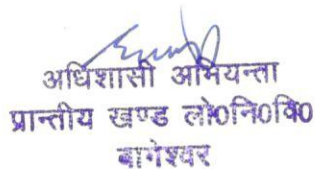 अधिशासी अभियन्ता
प्रान्तीय खण्ड लो०नि०वि०
बागेश्वर